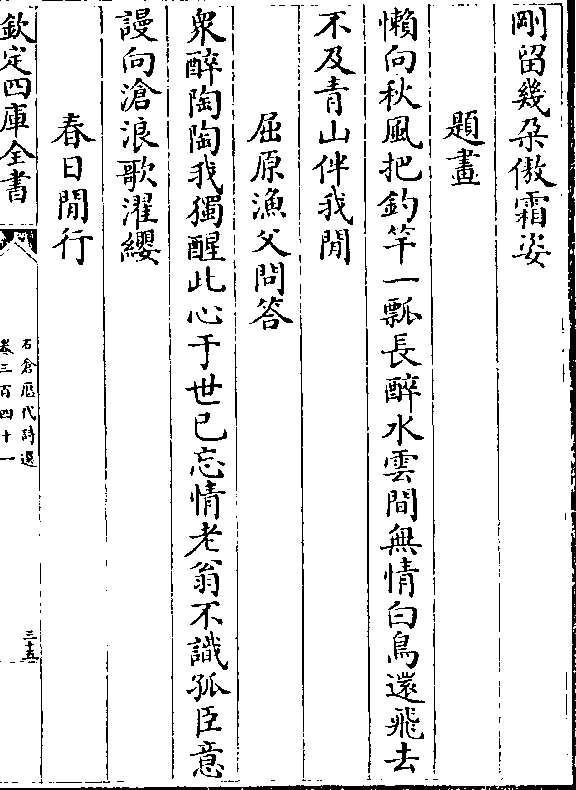 剛留幾朶傲霜姿
題畫
懶向秋風把釣竿一瓢長醉水雲間無情白鳥還飛去
不及青山伴我閒
屈原漁父問答
衆醉陶陶我獨醒此心于世已忘情老翁不識孤臣意
謾向滄浪歌濯纓
春日閒行
欽定四庫全書
石倉歷代詩選
卷三百四十一
三十五